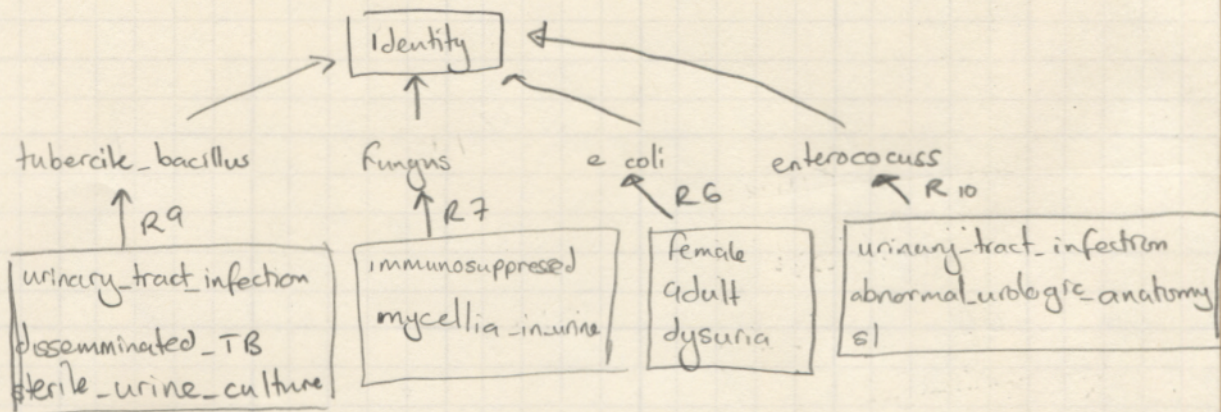 Identity
tubercile_bacillus
fungus
e coli
enterococuss
R9
R7
R6
R10
urinary_tract_infection
dissemminated_TB
sterile_urine_culture
immunosuppressed
mycellia_in_urine
female
adult
dysuria
urinary_tract_infection
abnormal_urologic_anatomy
sl